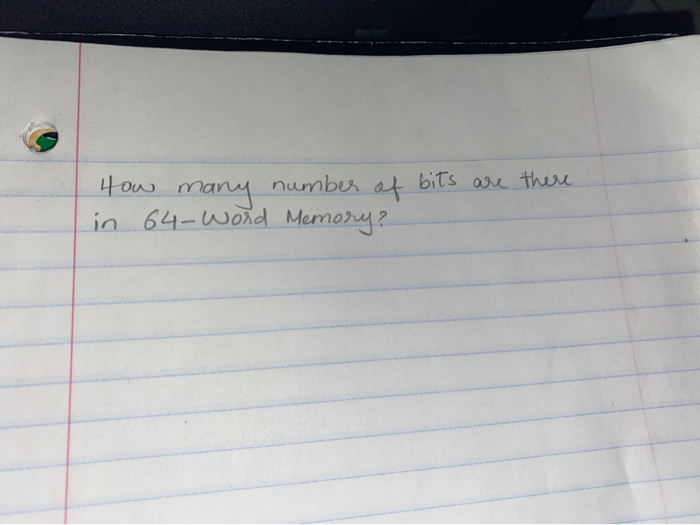 How many number of bits are there
in 64-Word Memory?